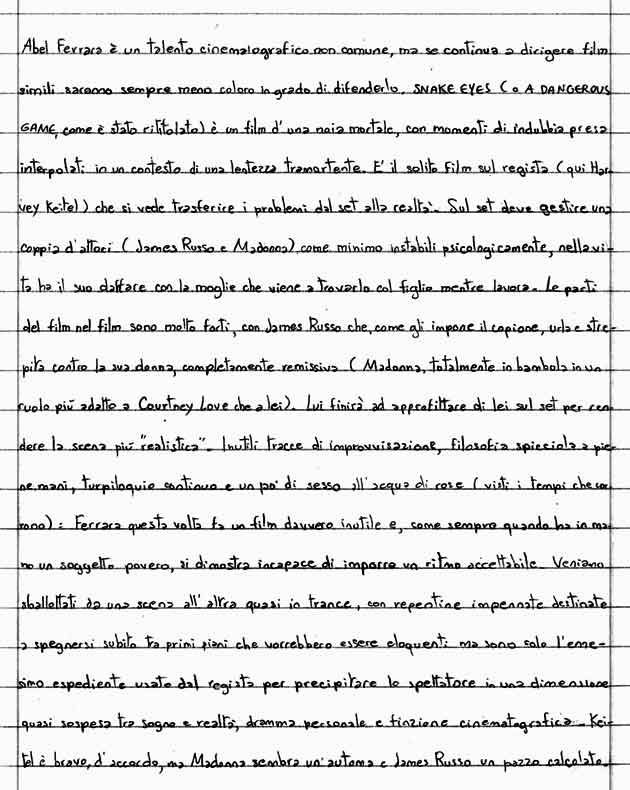 Abel Ferrara è un talento cinematografico non comune, ma se continua a dirigere film
simili saranno sempre meno coloro in grado di difenderlo. SNAKE EYES (o A DANGEROUS
GAME, come è stato rititolato) è un film d'una noia mortale, con momenti di indubbia presa
interpolati in un contesto di una lentezza tramortente. E' il solito film sul regista (qui Har-
vey Keitel) che si vede trasferire i problemi dal set alla realtà. Sul set deve gestire una
coppia d'attori (James Russo e Madonna) come minimo instabili psicologicamente, nella vi-
ta ha il suo daffare con la moglie che viene a trovarlo col figlio mentre lavora. Le parti
del film nel film sono molto forti, con James Russo che, come gli impone il copione, urla e stre-
pita contro la sua donna, completamente remissiva (Madonna, totalmente in bambola in un
ruolo più adatto a Courtney Love che a lei). Lui finirà ad approfittare di lei sul set per ren-
dere la scena più "realistica". Inutili tracce di improvvisazione, filosofia spicciola a pie-
ne mani, turpiloquio continuo e un po' di sesso all'acqua di rose (visti i tempi che cor-
rono): Ferrara questa volta fa un film davvero inutile e, come sempre quando ha in ma-
no un soggetto povero, si dimostra incapace di imporre un ritmo accettabile. Veniamo
sballottati da una scena all'altra quasi in trance, con repentine impennate destinate
a spegnersi subito tra primi piani che vorrebbero essere eloquenti ma sono solo l'enne-
simo espediente usato dal regista per precipitare lo spettatore in una dimensione
quasi sospesa tra sogno e realtà, dramma personale e finzione cinematografica. Kei-
tel è bravo, d'accordo, ma Madonna sembra un'automa e James Russo un pazzo calcolato.